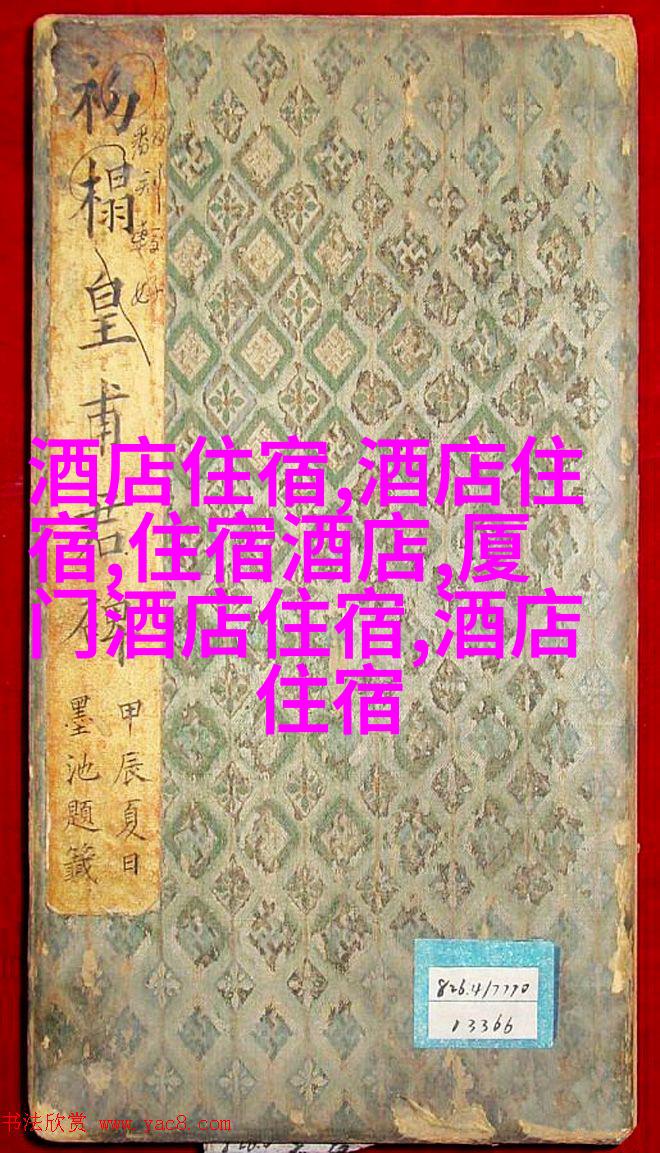 初榻皇甫君碑
翻刻較好
甲辰夏日
墨池題籤
酒店住宿,酒店住
宿,住宿酒店,厦
门酒店住宿,酒店
住宿
826.4/7770
13366
书法欣赏 www.yac8.com